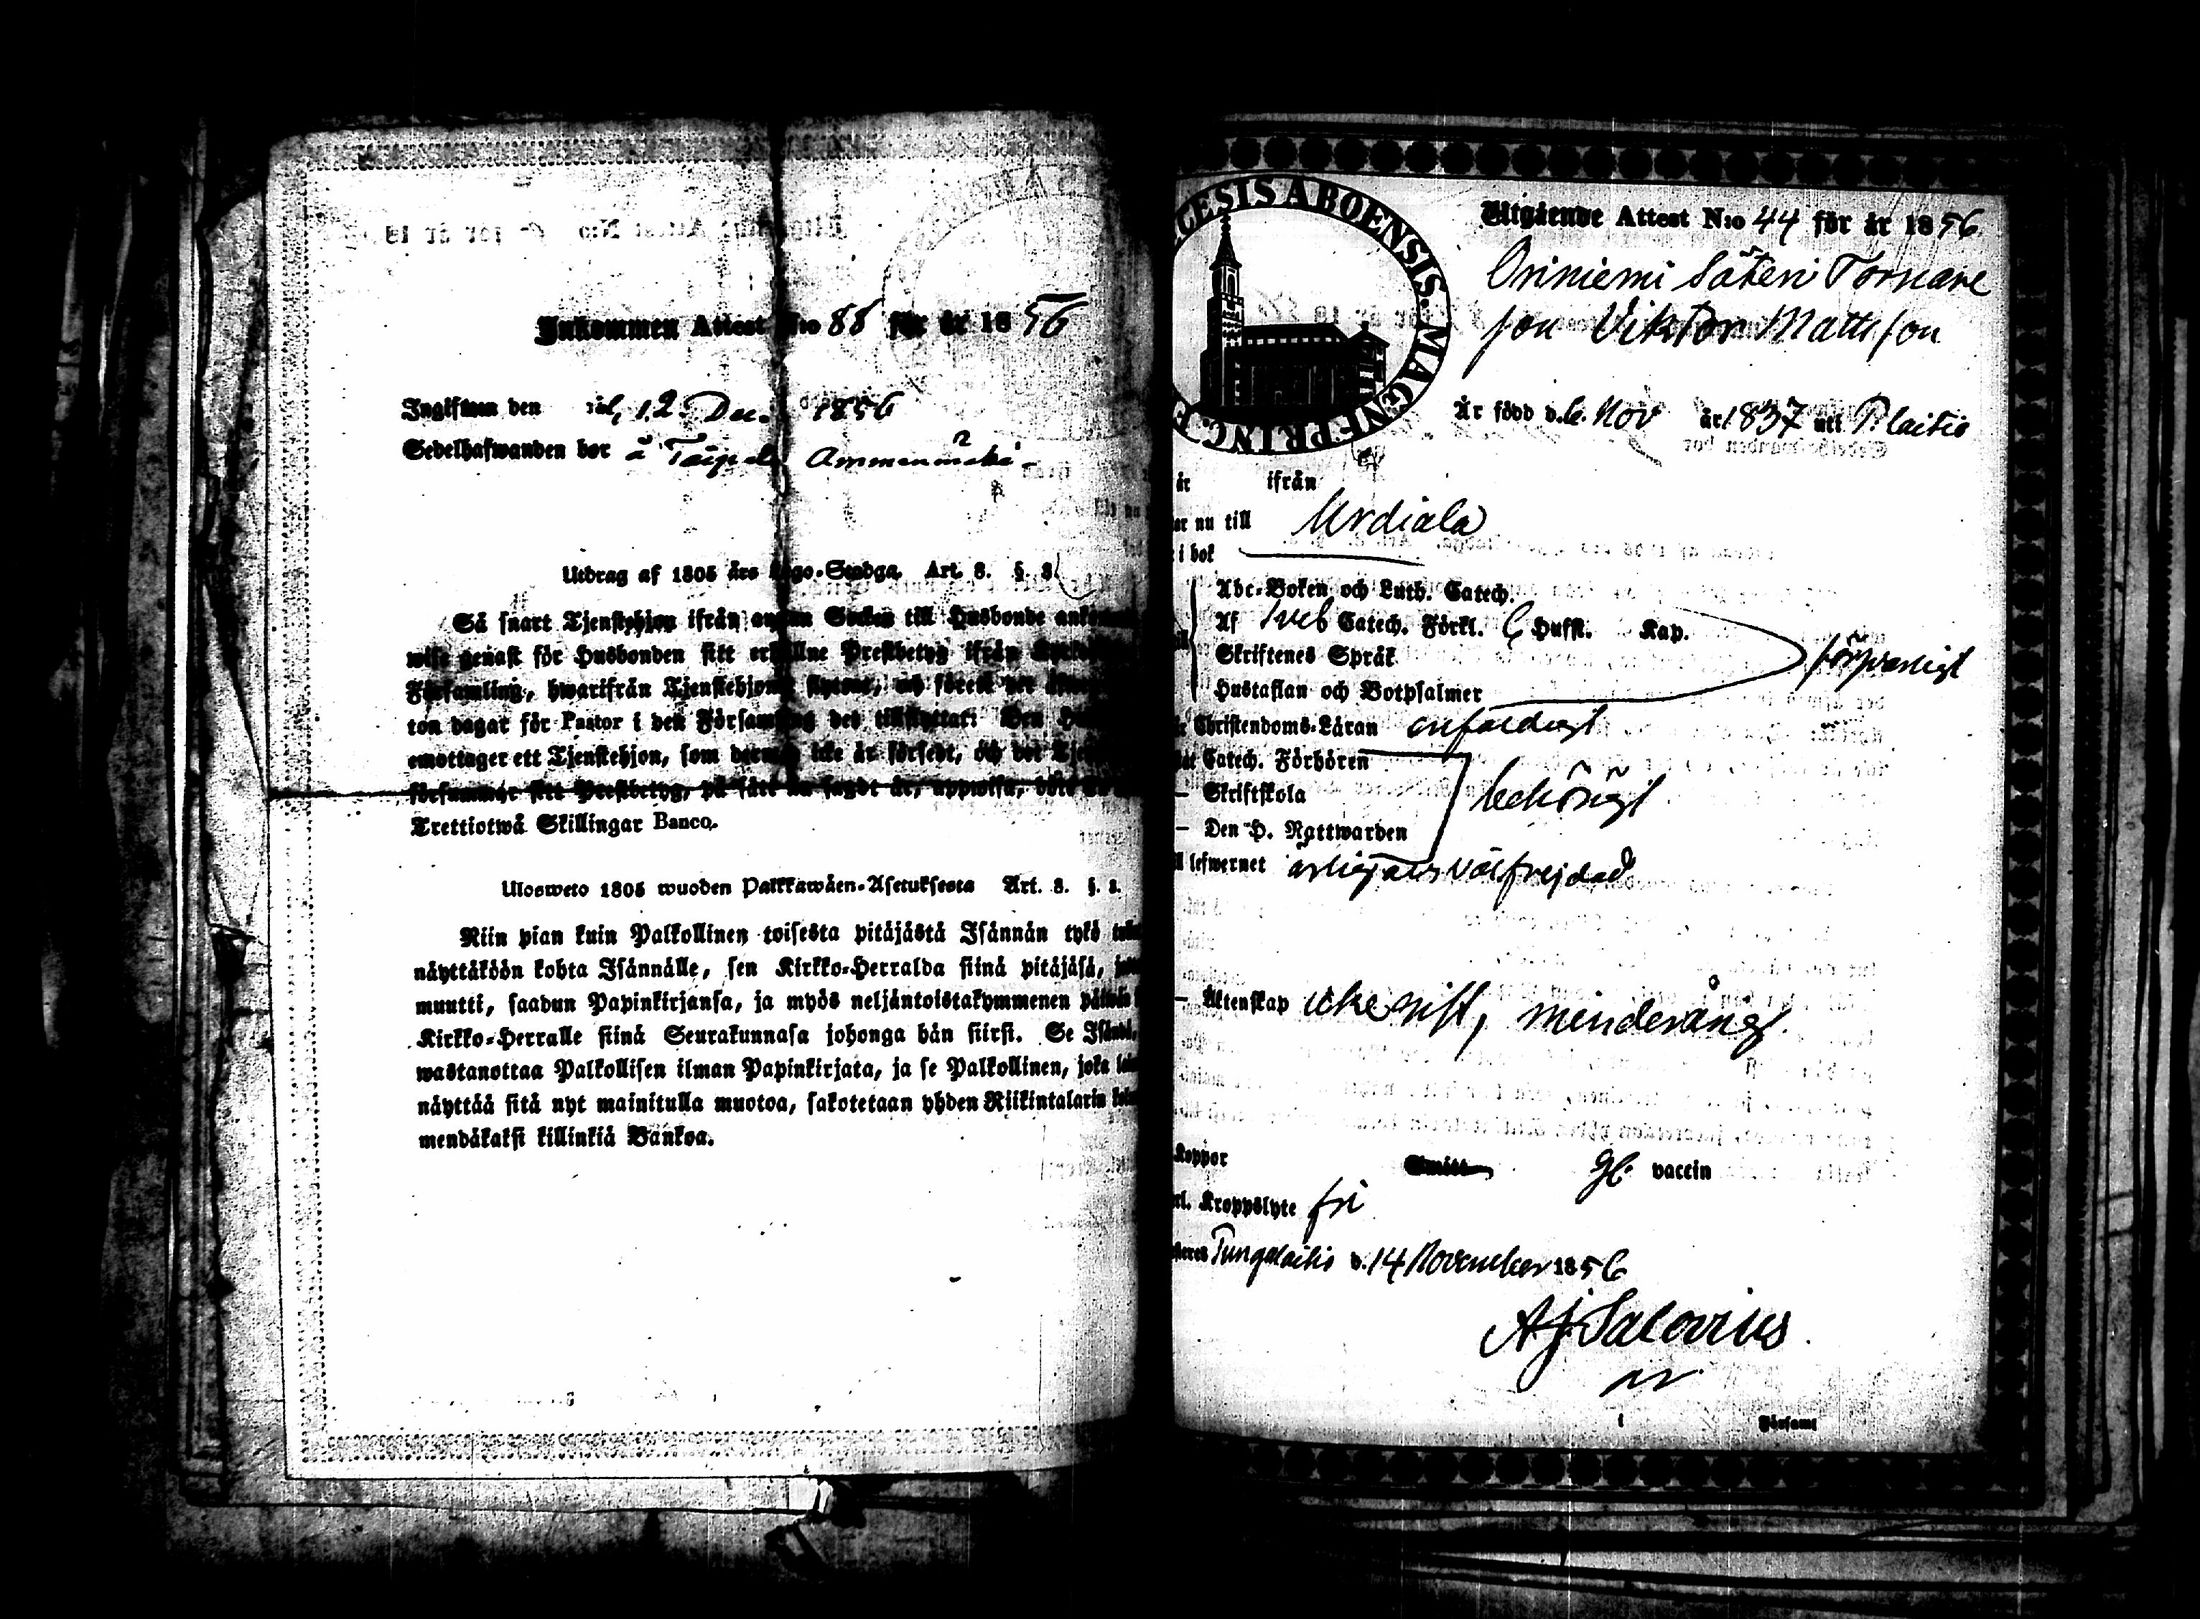 Inkommen Attest N:o 88 för år 1856
Ingifwen den 12 Dec. 1856
Sedelhafwanden bor å
Utdrag af 1805 års Lego-Stadga. Art. 8. §. 3.
Så snart Tjenstehjon ifrån annan Socken till Husbonde
wise genast för Husbonden sitt erhållne Prestbetyg ifrån
Församling, hwarifrån Tjenstehjonet flyttat, och förete det
ton dagar för Pastor i den Församling det tillflyttat: Den
emottager ett Tjenstehjon, som dermed icke är försedt, och det
försummar sitt Prestbetyg, på sätt nu sagdt är, uppwisa, böte
Trettiotwå Skillingar Banco.
Ulosweto 1805 wuoden Palkkawäen-Asetuksesta Art. 8. §. 3.
Niin pian kuin Palkollinen toisesta pitäjästä Isännän tykö
näyttäköön kohta Isännälle, sen Kirkko-Herralda siinä pitäjäsä,
muutti, saadun Papinkirjansa, ja myös neljäntoistakymmenen
Kirkko-Herralle siinä Seurakunnasa johonga hän siirsi. Se
wastanottaa Palkollisen ilman Papinkirjata, ja se Palkollinen, joka
näyttää sitä nyt mainitulla muotoa, sakotetaan yhden Riikintalarin
mendäkaksi killinkiä Bankoa.
CESIS ABOENSIS. MAGNI PRINC. F
Utgående Attest N:o 44 för år 1856
Oriniemi Säteri Tornare
son Viktor Mattsson
Är född d. 6. Nov år 1837 uti P:laitio
är ifrån
nu till Urdiala
i bok
Abc-Boken och Luth. Catech.
Af Sveb Catech. Förkl. Hufst. Kap.
Skriftenes Språk
försvarligt
Hustaflan och Botpsalmer
Christendoms-Läran enfaldigt
Catech. Förhören
– Skriftskola behörigt
– Den H. Nattwarden
lefwernet ärlig och välfrejdad
– Äktenskap icke gift, minderårigt.
Koppor vaccin
Kroppslyte fri
Pungalaitio d. 14 November 1856
A J Salovius
Församl